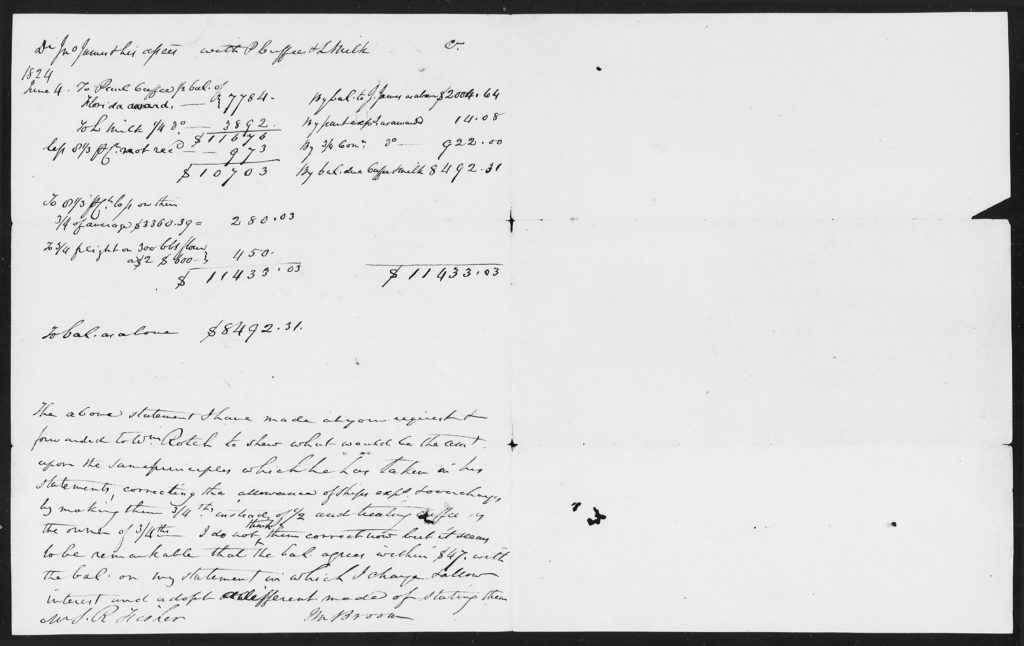 Dr Jno James & his assees with P Cuffee & L Milk Cr.
1824
June 4. To Paul Cuffee for bal. of
Florida award. — $7784.
To L Milk 1/4 do — 3892.
$11676
less 8 1/3 pCt. not recd — 973
$10703
To 8 1/3 pCt. loss on their
3/4 of average $3360.39 = 280.03
To 3/4 freight on 300 bbls flour
a $2 $600 — 450.
$11433.03
By bal. to J. James as above $2004.64
By part exps as award 14.08
By 3/4 Comn. do — 922.00
By bal. due Cuffee & Milk 8492.31
$11433.03
To bal. as above $8492.31.
The above statement I have made at your request &
forwarded to Wm Rotch to shew what would be the acct.
upon the same principles which he has taken in his
statements, correcting the allowance of ships exps & overcharge,
by making them 3/4ths instead of 1/2 and treating Cuffee as
the owner of 3/4ths I do not think them correct now but it seems
to be remarkable that the bal. agrees within $47. with
the bal. on my statement in which I charge & allow
interest and adopt a different mode of stating them
Mr S. R. Fisher Jm Broom